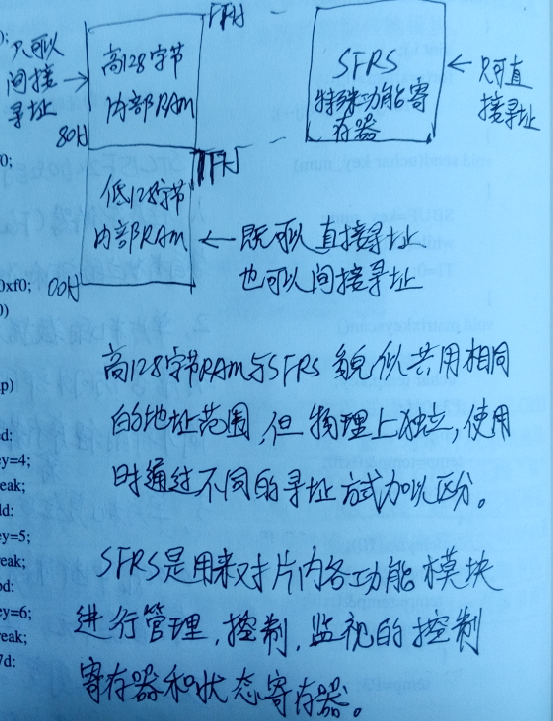 FFH
只可以
间接
寻址
高128字节
内部RAM
80H
SFRS
特殊功能寄
存器
只可直
接寻址
7FH
低128字节
内部RAM
00H
既可以直接寻址
也可以间接寻址
高128字节RAM与SFRS貌似共用相同
的地址范围,但物理上独立,使用
时通过不同的寻址方式加以区分。
SFRS是用来对片内各功能模块
进行管理,控制,监视的控制
寄存器和状态寄存器。
);
f0;
0xf0;
0)
p)
ed:
ey=4;
eak;
ey=5;
reak;
ey=6;
reak;
7d: